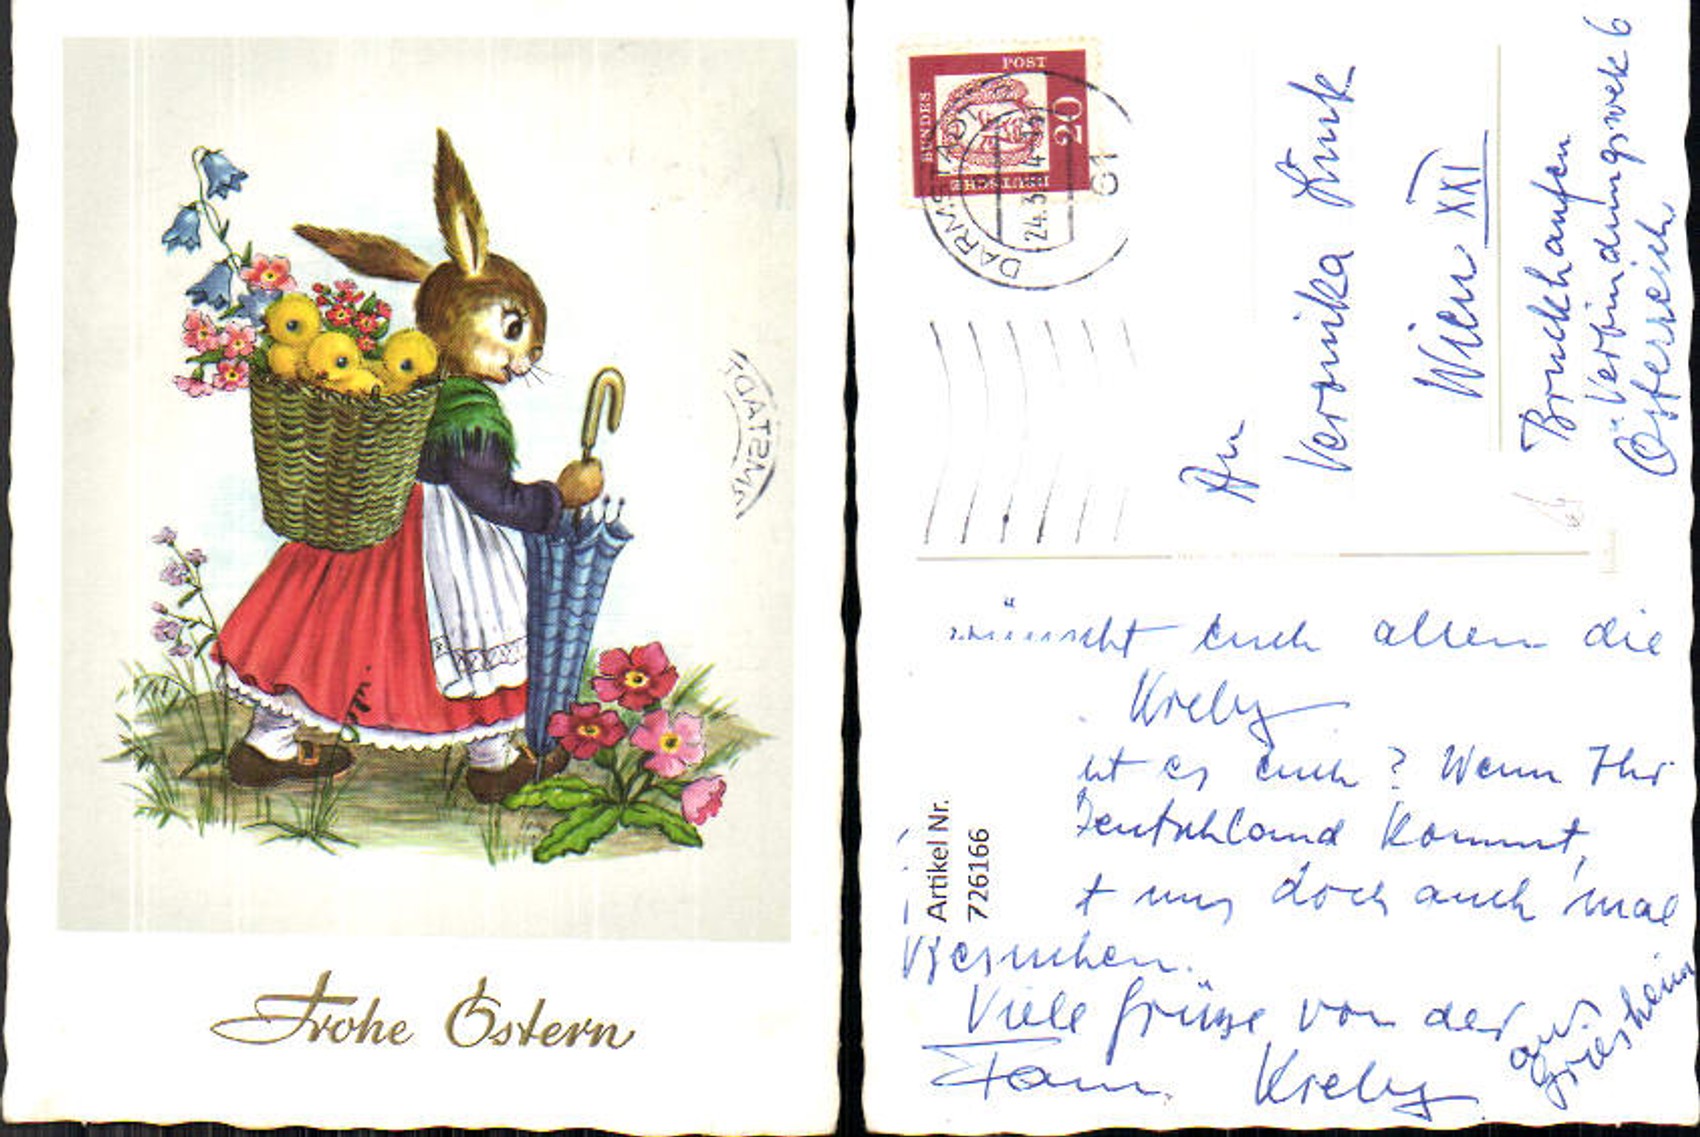 Frohe Ostern
DEUTSCHE
BUNDES
POST
20
DARMSTADT
24.3
61
An
Veronika
Wien XXI
Bruckhaufen
Verbindungsweg 6
Österreich
wünscht euch allen die
es euch? Wenn Ihr
Deutschland kommt,
t uns doch auch 'mal
besuchen.
Viele Grüße von der
Fam.
aus
Griesheim
Artikel Nr.
726166